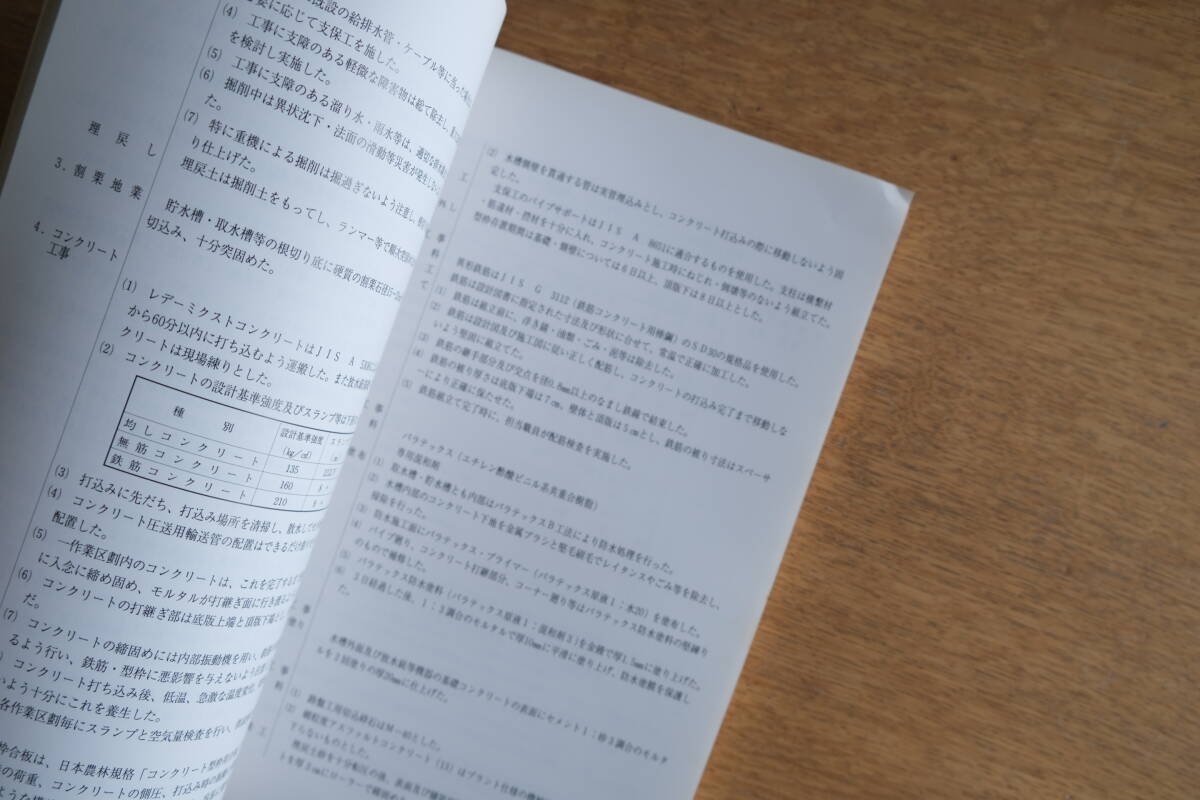 既設の給排水管・ケーブル等に当った
要に応じて支保工を施した。
(4) 工事に支障のある軽微な障害物は総て除去し、
を検討し実施した。
(5) 工事に支障のある溜り水・雨水等は、適切な
(6) 掘削中は異状沈下・法面の滑動等災害が発生しな
た。
(7) 特に重機による掘削は掘過ぎないよう注意し、
り仕上げた。
埋戻し
埋戻土は掘削土をもってし、ランマー等で
3.割栗地業
貯水槽・取水槽等の根切り底に硬質の割栗石
切込み、十分突固めた。
4.コンクリート
工事
(1) レデーミクストコンクリートはJIS A
から60分以内に打ち込むよう運搬した。また
クリートは現場練りとした。
(2) コンクリートの設計基準強度及びスランプ等は
種別 設計基準強度
(kg/㎠)
均しコンクリート 135
無筋コンクリート 160
鉄筋コンクリート 210
(3) 打込みに先だち、打込み場所を清掃し、散水して
(4) コンクリート圧送用輸送管の配置はできるだけ
配置した。
(5) 一作業区劃内のコンクリートは、これを完了する
に入念に締め固め、モルタルが打継ぎ面に行き
(6) コンクリートの打継ぎ部は底版上端と頂版下端
だ。
(7) コンクリートの締固めには内部振動機を用い、
るよう行い、鉄筋・型枠に悪影響を与えないよう
コンクリート打ち込み後、低温、急激な温度変化
いよう十分にこれを養生した。
各作業区劃毎にスランプと空気量検査を行い、
枠合板は、日本農林規格「コンクリート型枠
の荷重、コンクリートの側圧、打込み時の
(2) 水槽側壁を貫通する管は実管埋込みとし、コンクリート打込みの際に移動しないよう固
定した。
支保工のパイプサポートはJIS A 8651に適合するものを使用した。支柱は横繋材
・筋違材・控材を十分に入れ、コンクリート施工時にねじれ・倒壊等のないよう組立てた。
型枠存置期間は基礎・側壁については6日以上、頂版下は8日以上とした。
異形鉄筋はJIS G 3112(鉄筋コンクリート用棒鋼)のSD30の規格品を使用した。
(1) 鉄筋は設計図書に指定された寸法及び形状に合せて、常温で正確に加工した。
(2) 鉄筋は組立前に、浮き錆・油類・ごみ・泥等は除去した。
鉄筋は設計図及び施工図に従い正しく配筋し、コンクリートの打込み完了まで移動しな
いよう堅固に組立てた。
(3) 鉄筋の継手部分及び交点を径0.8mm以上のなまし鉄線で結束した。
(4) 鉄筋の被り厚さは底版下端は7cm、壁体と頂版は5cmとし、鉄筋の被り寸法はスペーサ
ーにより正確に保たせた。
(5) 鉄筋組立て完了時に、担当職員が配筋検査を実施した。
パラテックス(エチレン酢酸ビニル系共重合樹脂)
専用混和剤
(1) 取水槽・貯水槽とも内部はパラテックスB工法により防水処理を行った。
(2) 水槽内部のコンクリート下地を金属ブラシと堅毛刷毛でレイタンスやごみ等を除去し、
掃除を行った。
(3) 防水施工面にパラテックス・プライマー(パラテックス原液1:水20)を塗布した。
(4) パイプ廻り、コンクリート打継部分、コーナー廻り等はパラテックス防水塗料の堅練り
のもので補修した。
(5) パラテックス防水塗料(パラテックス原液1:混和剤3)を金鏝で厚1.5mmに塗り上げた。
(6) 3日経過した後、1:3調合のモルタルで厚10mmに平滑に塗り上げ、防水塗膜を保護し
た。
水槽外面及び放水銃等機器の基礎コンクリートの表面にセメント1:砂3調合のモルタ
ルを2回塗りの厚20mmに仕上げた。
(1) 路盤工用切込砕石はM-40とした。
(2) 細粒度アスファルトコンクリート(13)はプラント仕様の
下らないものとした。